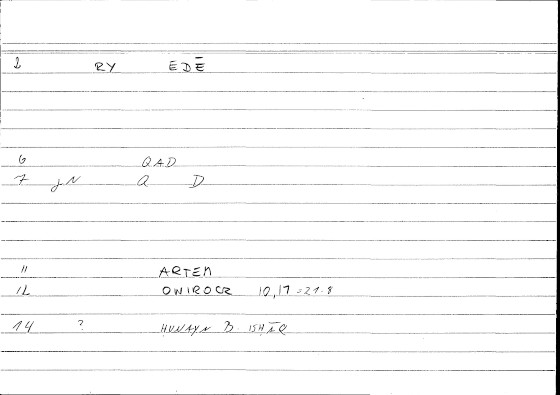 2 RY EDĒ
6 QAD
7 jN Q D
11 ARTEM
12 ONIROCR 10,17 = 21.8
14 ? HUNAYN B. ISHĀQ